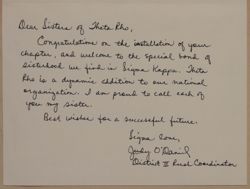 Dear Sisters of Theta Rho,
Congratulations on the installation of your
chapter, and welcome to the special bond of
sisterhood we find in Sigma Kappa. Theta
Rho is a dynamic addition to our national
organization. I am proud to call each of
you my sister.
Best wishes for a successful future.
Sigma love,
Judy O'Daniel
District II Rush Coordinator